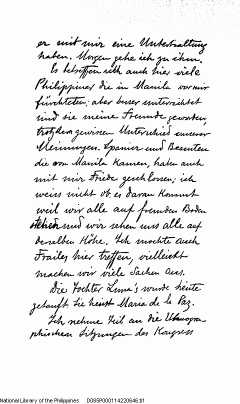 er mit mir eine Unterhaltung
haben. Morgen gehe ich zu ihm.
Es betreffen sich auch hier viele
Philippiner die in Manila vor mir
fürchteten; aber besser unterrichtet
sind sie meine Freunde geworden,
trotzdem gewissen Unterschied unserer
Meinungen. Spanier und Beamten
die von Manila kamen, haben auch
mit mir Friede geschlossen; ich
weiss nicht ob es daran kommt
weil wir alle auf fremden Boden
stehen und wir sehen uns alle auf
derselben Höhe. Ich mochte auch
Frailes hier treffen, vielleicht
machen wir viele Sachen aus.
Die Tochter Luna's wurde heute
getauft Sie heisst Maria de la Paz.
Ich nehme Teil an die
phischen Sitzungen des Kongress
National Library of the Philippines